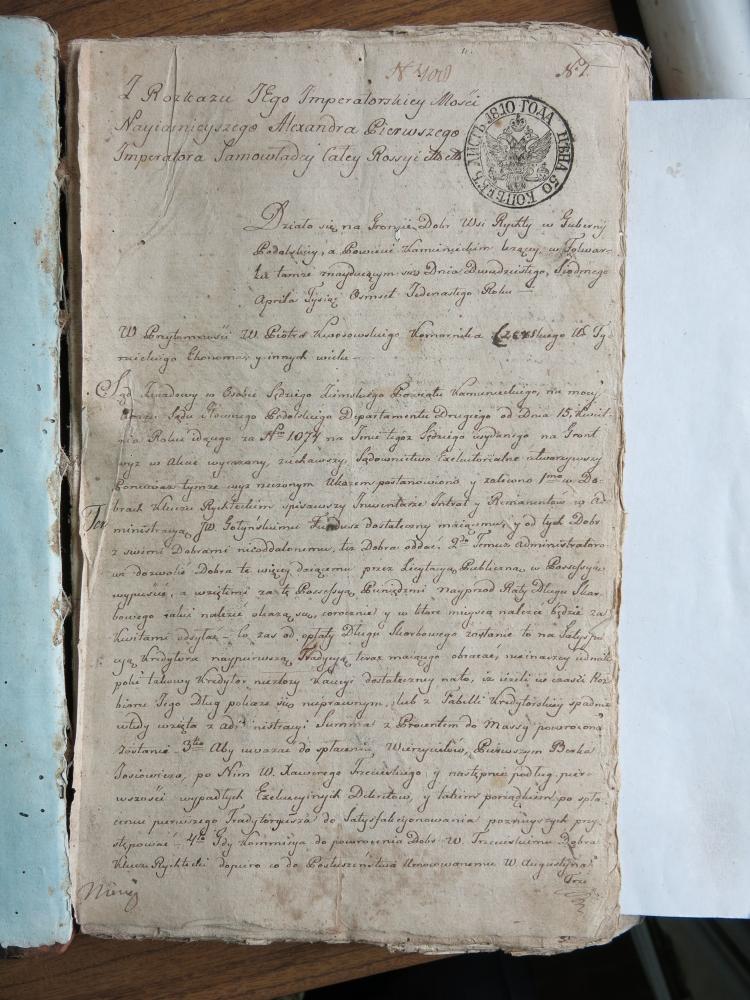 N 4010
N. 1.
Z Rozkazu JEgo Imperatorskiey Mości
Nayiasnieyszego Alexandra Pierwszego
Imperatora Samowładcy Całey Rossyi
ЛИСТЪ 1810 ГОДА ЦѢНА 50 КОПѢЕКЪ
Działo się na Groncie Dobr Wsi Rychty w Guberny
Podolskiey, a Powiecie Kamienieckim leżącey, w Folwar-
ku tamze znayduiącym się Dnia Dwudziestego Siodmego
Aprila Tysiąc Osmset Jedenastego Roku —
W Przytomności W Piotra Komornika
Ekonoma y innych wielu —
Sąd Zjazdowy w Osobie Sędziego Ziemskiego Powiatu Kamienieckiego, na mocy
Ukazu Sądu Głownego Podolskiego Departamentu Drugiego od Dnia 15. Kwiet-
nia Roku idącego za Nrm 1074 na Imie tegoż Sędziego wydanego na Gront
wyż w Akcie wyrażony, ziechawszy, Sądownictwo Exekutorialne otworzywszy
Ponieważ tymze wyz rzeczonym Ukazem postanowiono y zalecono 1mo w Do-
brach Klucza Rychteckim spisawszy Inwentarze Intrat y Remanentow w Ad-
ministracyą JW. Gotyńskiemu Fundusz dostateczny maiącemu, y od tych Dobr
z swemi Dobrami nieoddalonemu, też Dobra oddać. 2do Temuz Administratoro-
wi dozwolić Dobra te więcey daiącemu przez Licytacyą Publiczną w Possessyą
wypuście, a wziętemi za tę Possessyą Pieniędzmi nayprzod Raty Długu Skar-
bowego iakie należeć okażą się, corocznie y w ktore mieysca należeć będzie za
Kwitami odsyłać — Co zas od opłaty Długu Skarbowego zostanie to na Satysfa-
cyą Kredytora naypierwszą Tradycyą teraz maiącego obracać, nieinaczey iednak
poki takowy Kredytor niezłoży Kaucyi dostateczney na to, iż ieżeli w czasie Roz-
bioru Jego Dług pokaże się nieprawnym, lub z Tabelli Kredytorskiey spadnie
wtedy wzięta z administracyi Summa z Procentem do Massy powrocona
zostanie — 3tio Aby uważać do spłacenia Wierzycielow, Pierwszym Berka
Josiowicza, po Nim W. Xawerego Trzeciaskiego y następnie podług pier-
wszości wypadłych Exekucyinych Dekretow, y takim porządkiem po spła-
ceniu pierwszego Tradytoryusza do Satysfakcyonowania poznieyszych przy-
stępować — 4to Gdy Kommisya do powrocenia Dobr W. Trzeciaskiemu Dobra
Klucz Rychtecki dopiero co do Posłuszeństwa Umocowanemu W Augustyna
Trze